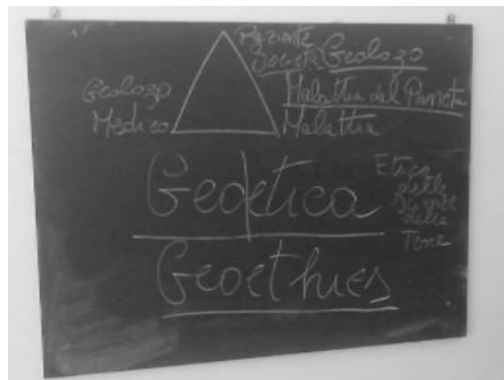 Paziente
Società Geologo
Geologo
Malattia del Pianeta
Medico
Malattia
Geoetica
Etica
delle
Scienze
della
Terra
Geoethics